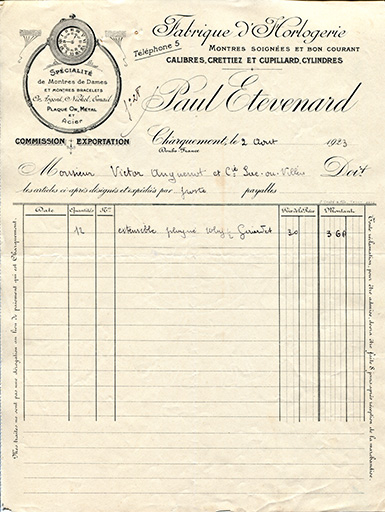 Fabrique d'Horlogerie
Téléphone 5
MONTRES SOIGNÉES ET BON COURANT
CALIBRES, CRETTIEZ ET CUPILLARD, CYLINDRES
SPÉCIALITÉ
de Montres de Dames
ET MONTRES BRACELETS
Or, Argent, Nickel, Émail
PLAQUÉ OR, MÉTAL
ET
Acier
N° 28
Paul Etevenard
COMMISSION - EXPORTATION
Charquemont, le 2 Août 1923
Doubs-France
Monsieur Victor Anguenot et Cie Luc-ou-Villers Doit
les articles ci-après désignés et expédiés par poste payables
Date Quantités Nos Prix de la Pièce Montant
12 ensemble plaqué Girardet 30 360
Mes traites ne sont pas une dérogation au lieu de paiement qui est Charquemont.
Toute réclamation, pour être admise, devra être faite 8 jours après réception de la marchandise.